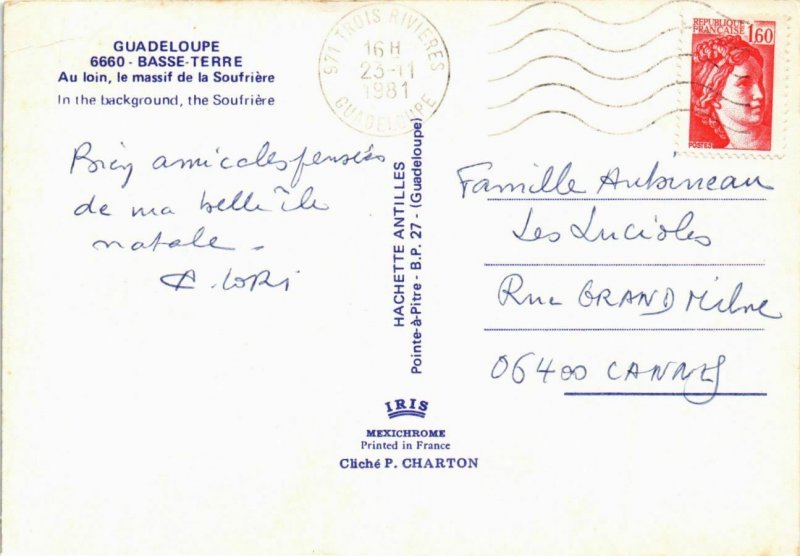 GUADELOUPE
6660 - BASSE-TERRE
Au loin, le massif de la Soufrière
In the background, the Soufrière
971 TROIS RIVIERES
16 H
23-11
1981
GUADELOUPE
REPUBLIQUE
FRANÇAISE
1,60
POSTES
Bien amicales pensées
de ma belle île
natale -
LORI
HACHETTE ANTILLES
Pointe-à-Pitre - B.P. 27 - (Guadeloupe)
Famille Aubineau
Les Lucioles
Rue GRAND Milne
06400 CANNES
IRIS
MEXICHROME
Printed in France
Cliché P. CHARTON